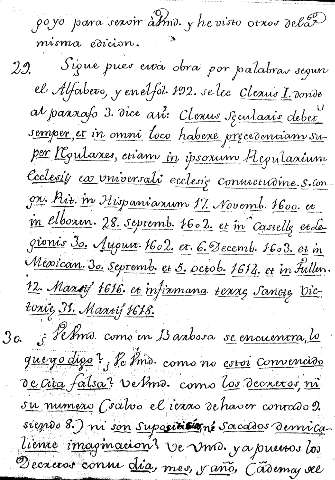 poyo para servir à Vmd. y he visto otros de la
misma edicion.
29. Sigue pues esta obra por palabras segun
el Alfabeto, y en el fol. 192. se lee Clerus I. donde
al parrafo 3. dice así: Clerus Sęcularis debet
semper, et in omni loco habere pręcedentiam su-
per Regulares, etiam in ipsorum Regularium
Ecclesijs ex universali ecclesię consuetudine. S. Con-
gr. Rit. in Hispaniarum 17. Novemb. 1600. et
in Elboren. 28. Septemb. 1602. et in Castellę et Le-
gionis 30. August. 1602. et. 6. Decemb. 1603. et in
Mexican. 30. Septemb. et 5. Octob. 1614. et in Fullen.
12. Martij 1616. et in firmana terrę Sanctę Vic-
torię 31. Martij 1618.
30. ¿Ve Vmd. como en Barbosa se encuentra, lo
que yo digo? ¿Ve Vmd. como no estoi convencido
de cita falsa? Ve Vmd. como los decretos, ni
su numero (salvo el ierro de haver contado 9.
siendo 8.) ni son sacados de mi ca-
liente imaginacion? Ve Vmd. ya puestos los
Decretos con su dia, mes, y año, (ademas de